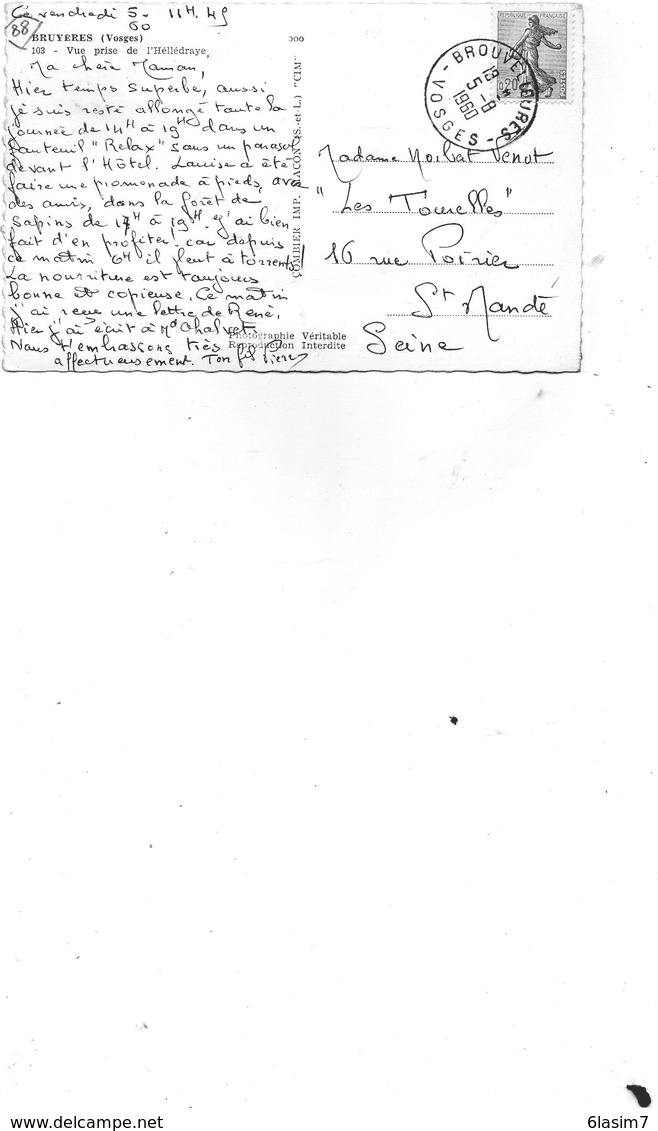 Ce vendredi 5. 11H.45
60
88
BRUYERES (Vosges)
103 - Vue prise de l'Hélledraye
Ma chère Maman,
Hier temps superbe, aussi
je suis resté allongé toute la
journée de 14H à 19H dans un
fauteuil "Relax" sous un parasol
devant l'Hôtel. Louise a été
faire une promenade à pieds, avec
des amis, dans la forêt de
sapins de 17H à 19H. J'ai bien
fait d'en profiter car depuis
ce matin 6H il pleut à torrents
La nourriture est toujours
bonne et copieuse. Ce matin
j'ai reçu une lettre de René,
Hier j'ai écrit à Md Chalvet
Nous t'embrassons très
affectueusement. Ton fils Pierre
COMBIER IMP. MACON (S.-et-L.) "CIM"
Photographie Véritable
Reproduction Interdite
REPUBLIQUE FRANÇAISE
0,20
POSTES
BROUVELIEURES
VOSGES
18H
5-8
1960
Madame Norbert Venot
"Les Tourelles"
16 rue Poirier
St Mandé
Seine
6lasim7